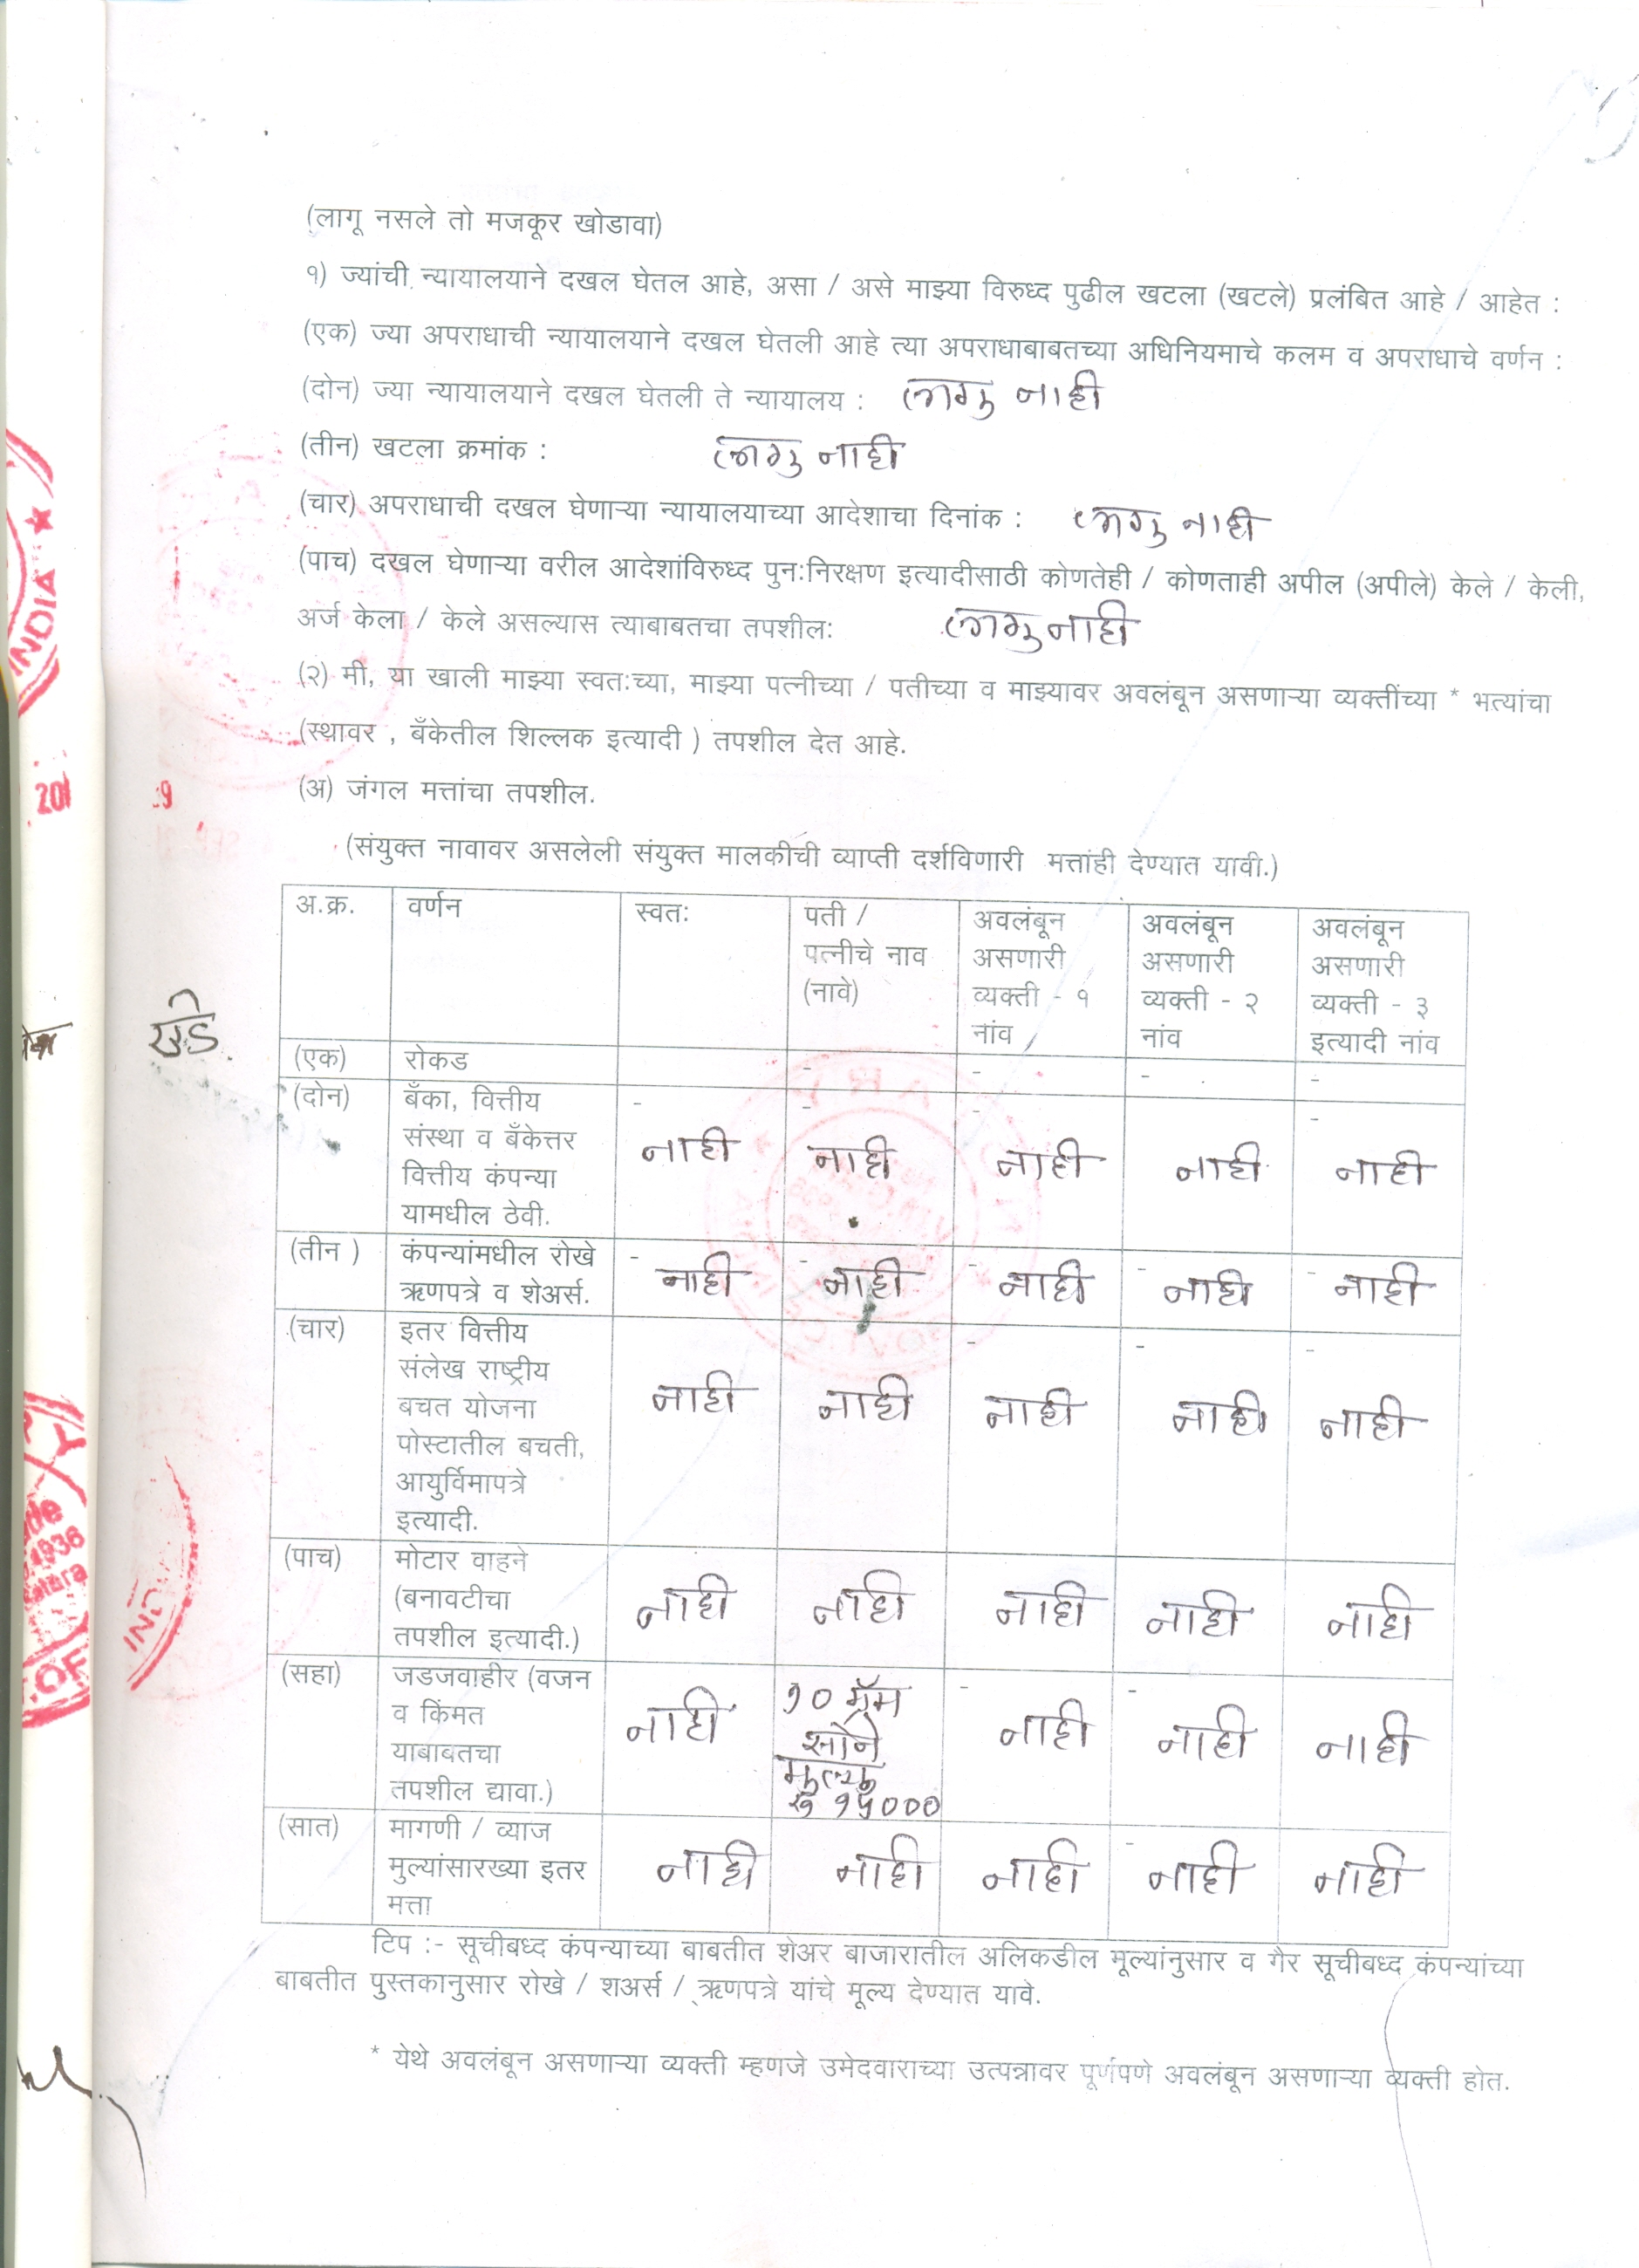 (लागू नसले तो मजकूर खोडावा)
१) ज्यांची न्यायालयाने दखल घेतल आहे, असा / असे माझ्या विरुध्द पुढील खटला (खटले) प्रलंबित आहे / आहेत :
(एक) ज्या अपराधाची न्यायालयाने दखल घेतली आहे त्या अपराधाबाबतच्या अधिनियमाचे कलम व अपराधाचे वर्णन :
(दोन) ज्या न्यायालयाने दखल घेतली ते न्यायालय : लागु नाही
(तीन) खटला क्रमांक : लागु नाही
(चार) अपराधाची दखल घेणाऱ्या न्यायालयाच्या आदेशाचा दिनांक : लागु नाही
(पाच) दखल घेणाऱ्या वरील आदेशांविरुध्द पुन:निरक्षण इत्यादीसाठी कोणतेही / कोणताही अपील (अपीले) केले / केली,
अर्ज केला / केले असल्यास त्याबाबतचा तपशील: लागु नाही
(२) मी, या खाली माझ्या स्वत:च्या, माझ्या पत्नीच्या / पतीच्या व माझ्यावर अवलंबून असणाऱ्या व्यक्तींच्या * भत्यांचा
(स्थावर , बँकेतील शिल्लक इत्यादी ) तपशील देत आहे.
(अ) जंगल मत्तांचा तपशील.
(संयुक्त नावावर असलेली संयुक्त मालकीची व्याप्ती दर्शविणारी मत्तांही देण्यात यावी.)
अ.क्र. वर्णन स्वत: पती / पत्नीचे नाव (नावे) अवलंबून असणारी व्यक्ती - १ नांव अवलंबून असणारी व्यक्ती - २ नांव अवलंबून असणारी व्यक्ती - ३ इत्यादी नांव
(एक) रोकड - - - -
(दोन) बँका, वित्तीय
संस्था व बँकेत्तर
वित्तीय कंपन्या
यामधील ठेवी.
नाही नाही नाही नाही नाही
(तीन ) कंपन्यांमधील रोखे
ऋणपत्रे व शेअर्स.
नाही नाही नाही नाही नाही
(चार) इतर वित्तीय
संलेख राष्ट्रीय
बचत योजना
पोस्टातील बचती,
आयुर्विमापत्रे
इत्यादी.
नाही नाही नाही नाही नाही
(पाच) मोटार वाहने
(बनावटीचा
तपशील इत्यादी.)
नाही नाही नाही नाही नाही
(सहा) जडजवाहीर (वजन
व किंमत
याबाबतचा
तपशील द्यावा.)
नाही
१० ग्रॅम
सोने
मुल्य
रु १५०००
नाही नाही नाही
(सात) मागणी / व्याज
मुल्यांसारख्या इतर
मत्ता
नाही नाही नाही नाही नाही
टिप :- सूचीबध्द कंपन्याच्या बाबतीत शेअर बाजारातील अलिकडील मूल्यांनुसार व गैर सूचीबध्द कंपन्यांच्या
बाबतीत पुस्तकानुसार रोखे / शअर्स / ऋणपत्रे यांचे मूल्य देण्यात यावे.
* येथे अवलंबून असणाऱ्या व्यक्ती म्हणजे उमेदवाराच्या उत्पन्नावर पूर्णपणे अवलंबून असणाऱ्या व्यक्ती होत.
INDIA
201
9
1936
OF
IND